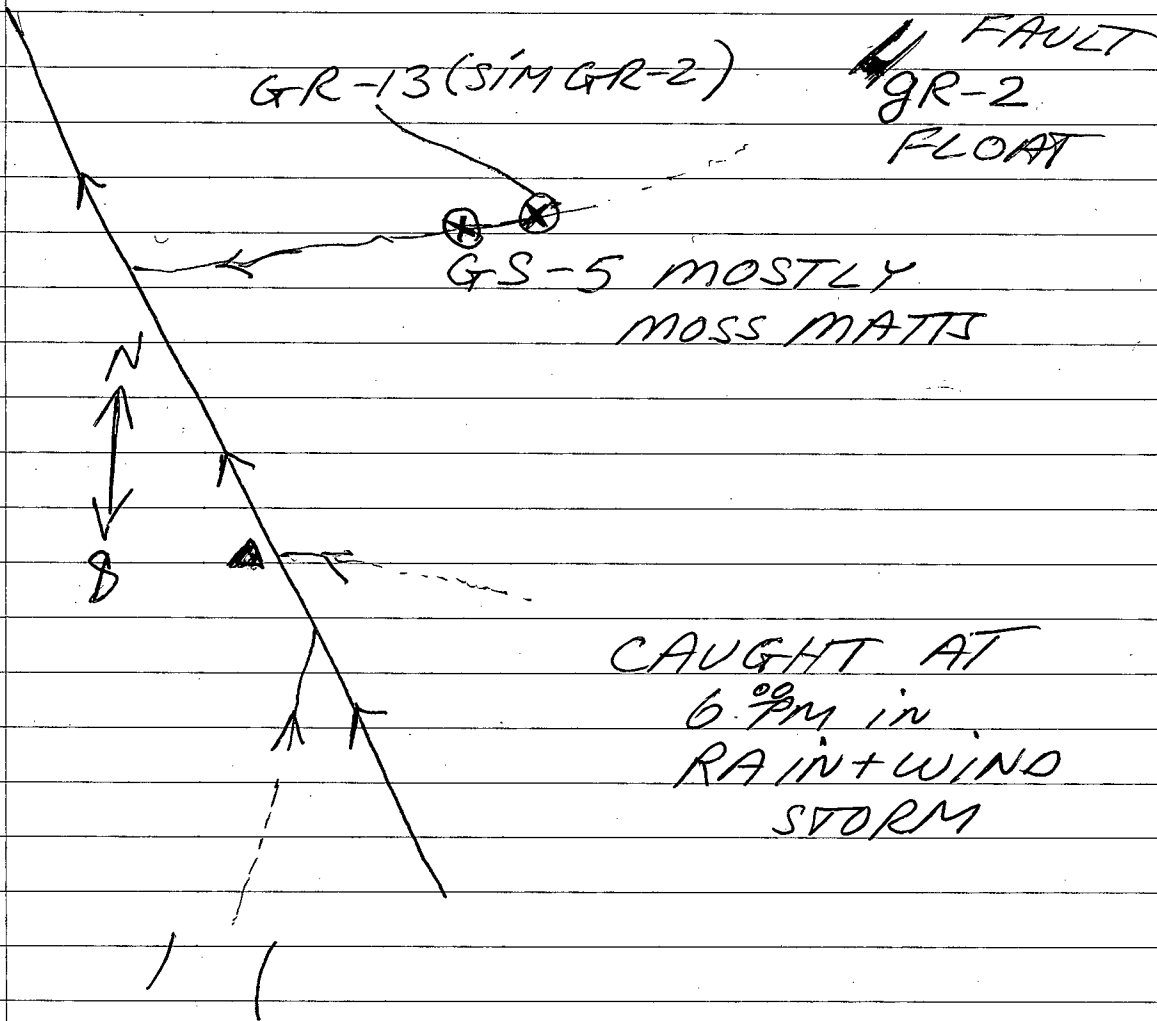 FAULT
GR-13 (SIM GR-2)
gR-2
FLOAT
GS-5 MOSTLY
MOSS MATTS
N
S
CAUGHT AT
6:00PM in
RAIN + WIND
STORM